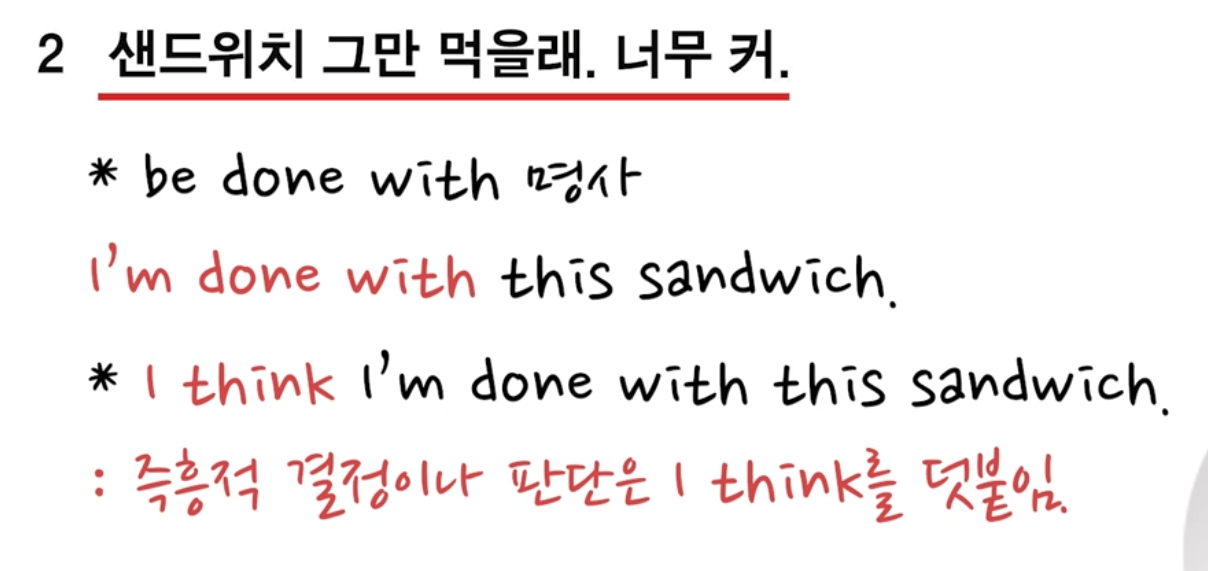 2 샌드위치 그만 먹을래. 너무 커.
* be done with 명사
I'm done with this sandwich.
* I think I'm done with this sandwich.
: 즉흥적 결정이나 판단은 I think를 덧붙임.